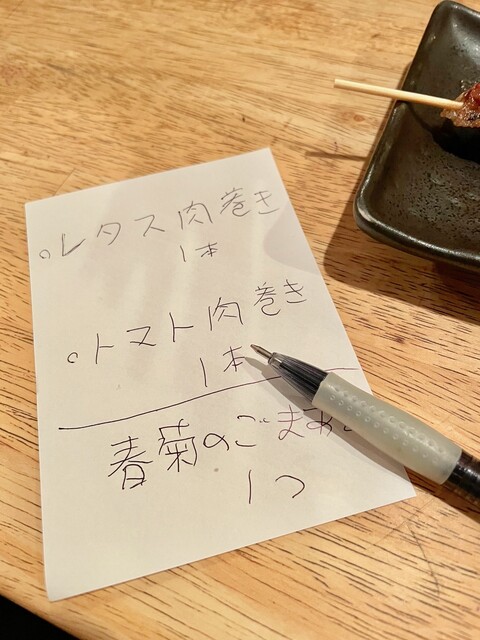 ○レタス肉巻き
1本
○トマト肉巻き
1本
春菊のごまあ
1つ